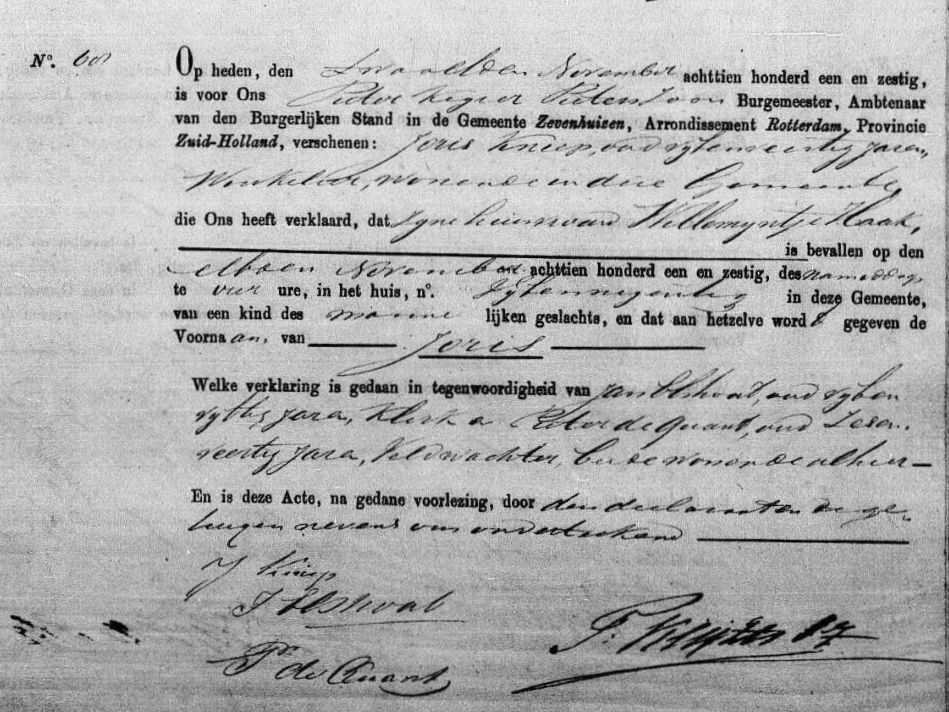 N°. 60
Op heden, den Twaalfden November achttien honderd een en zestig,
is voor Ons Pieter Pieterszoon Burgemeester, Ambtenaar
van den Burgerlijken Stand in de Gemeente Zevenhuizen, Arrondissement Rotterdam, Provincie
Zuid-Holland, verschenen: Joris Kniep, oud vyfenveertig jaren,
Winkelier, wonende in deze Gemeente,
die Ons heeft verklaard, dat zyne huisvrouw Willemyntje Haak,
is bevallen op den
elfden November achttien honderd een en zestig, des namiddags
te vier ure, in het huis, n°. vyfennegentig in deze Gemeente,
van een kind des manne lijken geslachts, en dat aan hetzelve wordt gegeven de
Voornaam, van Joris
Welke verklaring is gedaan in tegenwoordigheid van Jan Elshout, oud vyfen
vyftig jaren, Klerk en Pieter de Quant, oud zesen
veertig jaren, Veldwachter, beide wonende alhier
En is deze Acte, na gedane voorlezing, door den declarant en ge-
tuigen nevens ons onderteekend
J Kniep
J Elshout
P. de Quant